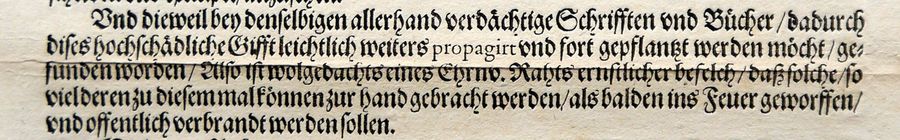 Vnd dieweil bey denselbigen allerhand verdächtige Schrifften vnd Bücher / dadurch
dises hochschädliche Gifft leichtlich weiters propagirt vnd fort gepflantzt werden möcht / ge-
funden worden / Also ist wolgedachts eines Ehrnv. Rahts ernstlicher befelch / daß solche / so
viel deren zu diesem mal können zur hand gebracht werden / als balden ins Feuer geworffen /
vnd offentlich verbrandt werden sollen.